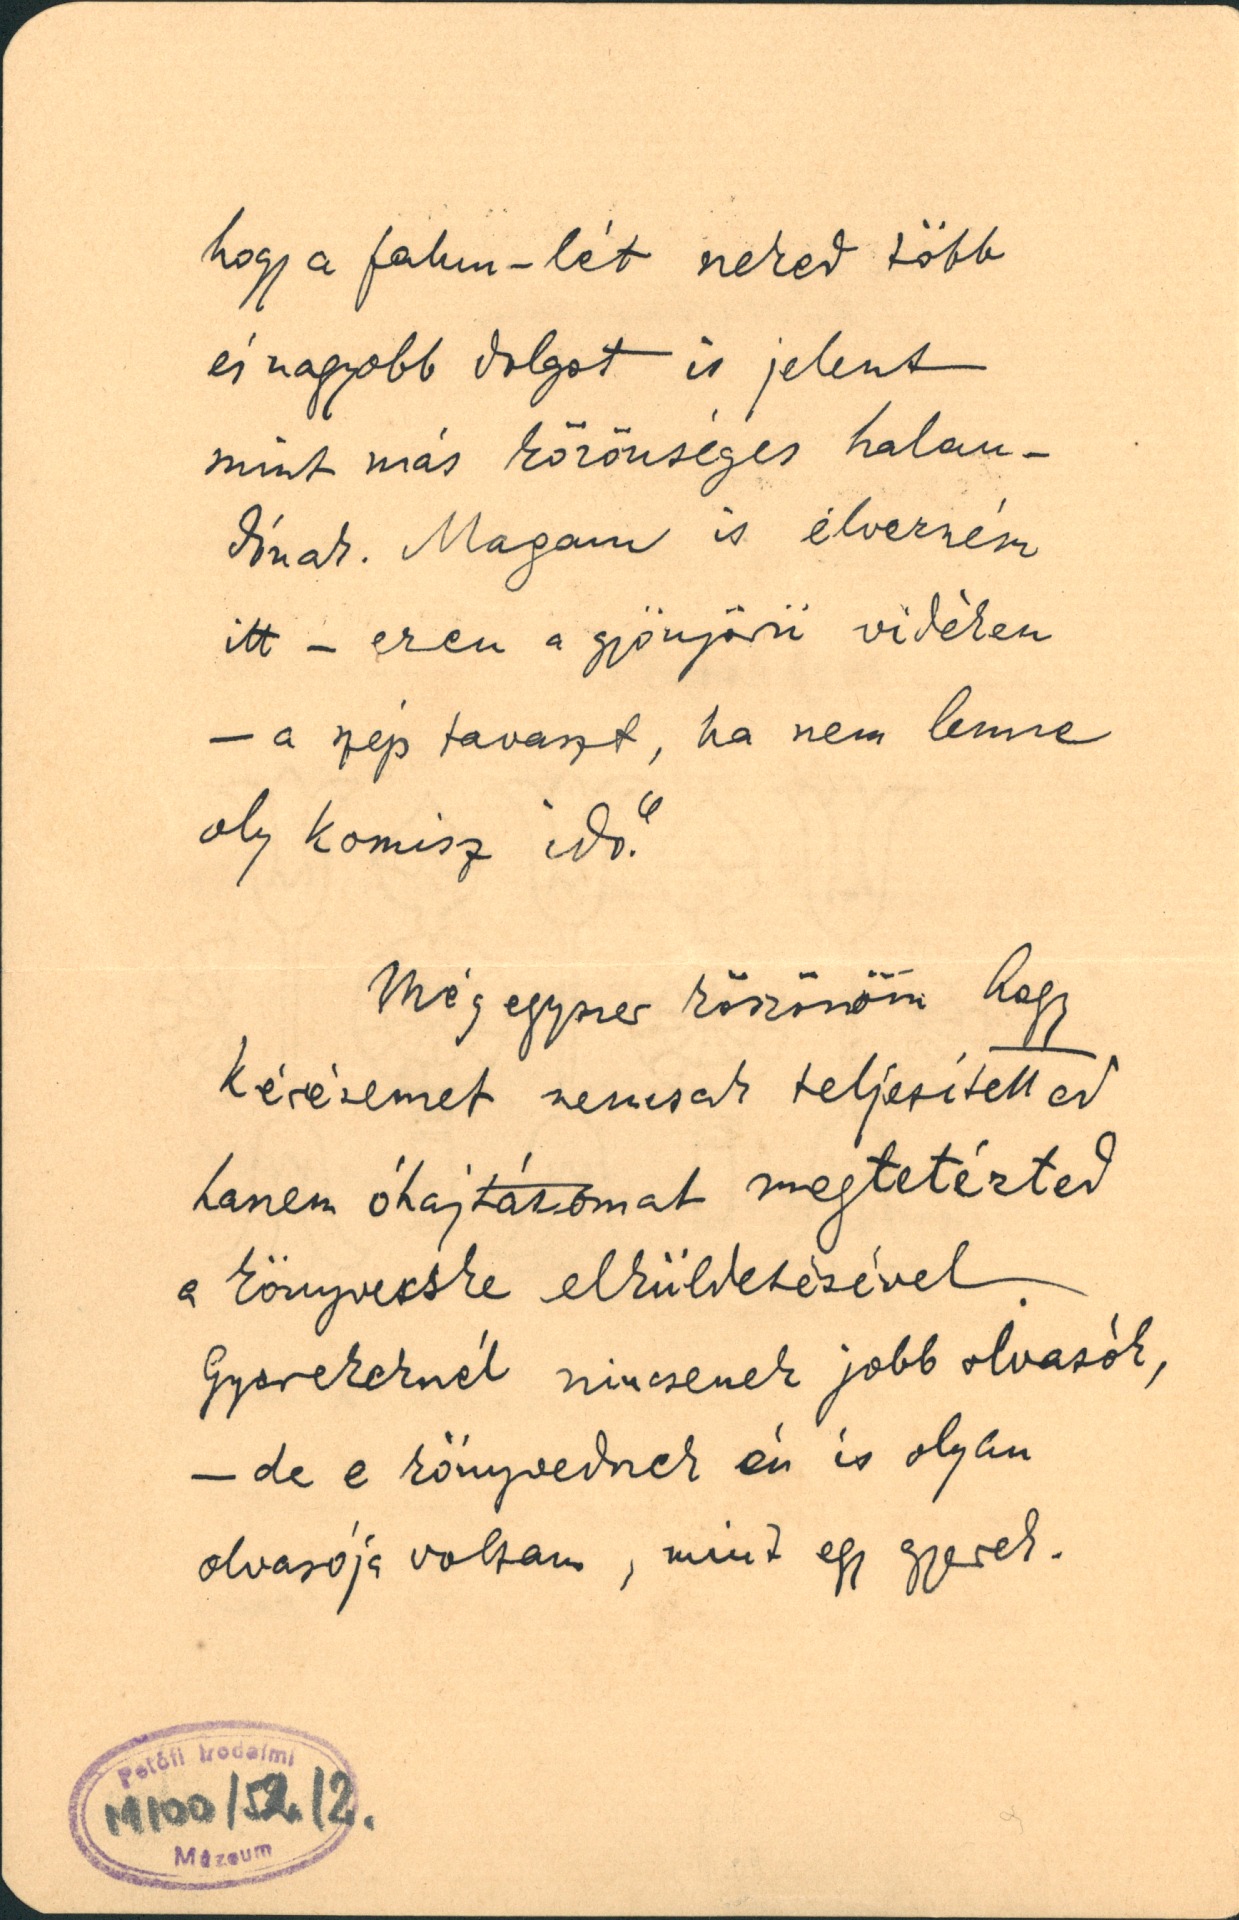 hogy a falun-lét neked több
és nagyobb dolgot is jelent
mint más közönséges halan-
dónak. Magam is élvezném
itt – ezen a gyönyörű vidéken
– a szép tavaszt, ha nem lenne
oly komisz idő."
Mégegyszer köszönöm hogy
kérésemet nemcsak teljesítetted
hanem óhajtásomat megtetézted
a könyvecske elküldetésével
Gyerekeknél nincsenek jobb olvasók,
– de e könyvednek én is olyan
olvasója voltam, mint egy gyerek.
Petőfi Irodalmi
M100/52./2.
Múzeum